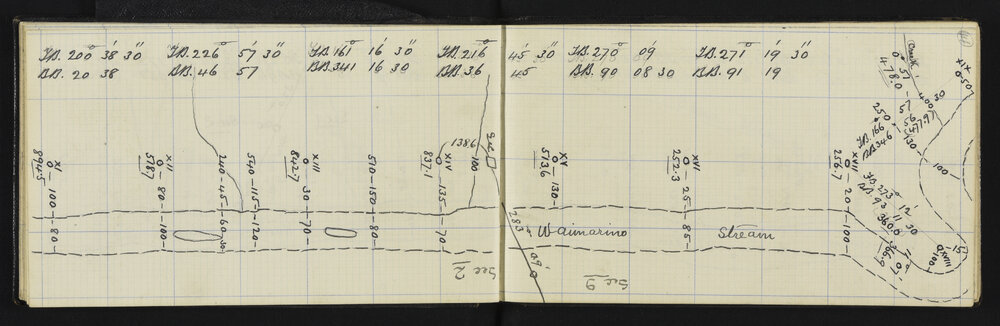 F.B. 200° 38' 30"
B.B. 20 38
F.B. 226° 57' 30"
B.B. 46 57
F.B. 161° 16' 30"
B.B. 341 16 30
F.B. 216° 45' 30"
B.B. 36 45
F.B. 270° 09'
B.B. 90 08 30
F.B. 271° 19' 30"
B.B. 91 19
XI
894.5 – 100 – 80 –
XII
578.7 – 80 – 100 –
240 – 45 – 60 – 30
540 – 115 – 120
XIII
842.7 – 30 – 70 –
510 – 150 – 80 –
138.6
XIV
837.1 – 135 – 70 –
100
283
09' 0
XV
573.6 – 130 –
XVI
252.3 – 25 – 85 –
XVII
256.7 – 20 – 100 –
Waimarino Stream
Sec 2
Sec 9
F.B. 273° 12' 30"
B.B. 93
360.0
XVIII
100
15
250
F.B. 166° 57
B.B. 346 56
477.97
130
100
400 30
478.0
0° 57
XIX
0 – 50